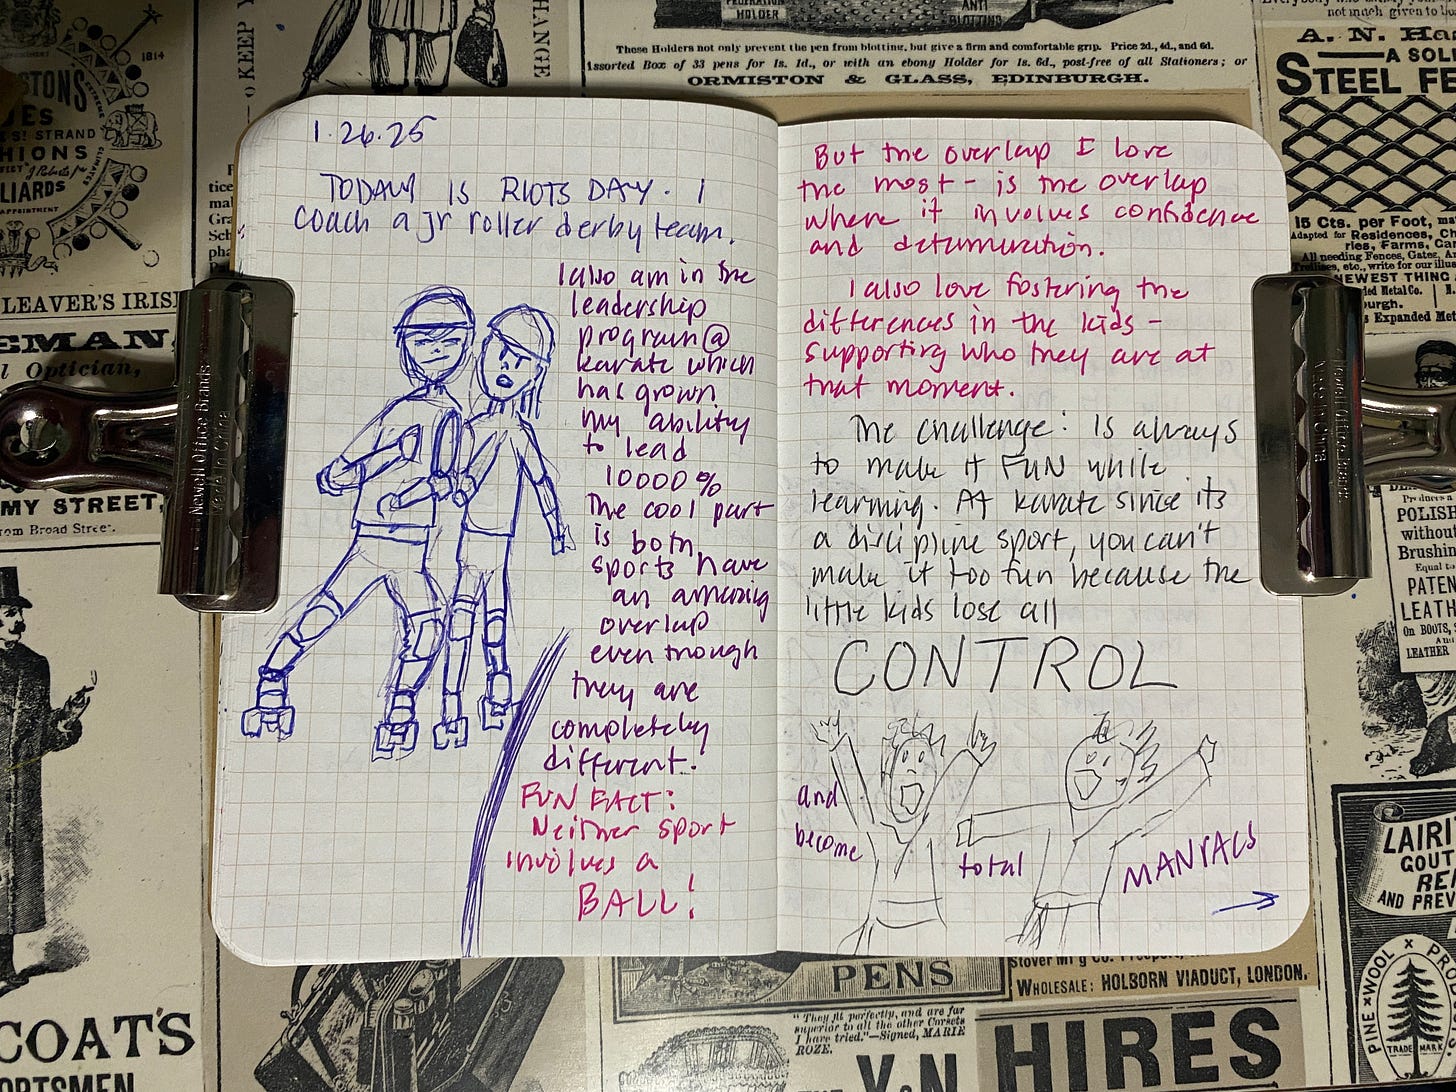 1.26.25
TODAY IS RIOTS DAY. I
coach a jr roller derby team.
I also am in the
leadership
program @
karate which
has grown
my ability
to lead
10000 %
The cool part
is both
sports have
an amazing
overlap
even though
they are
completely
different.
FUN FACT:
Neither sport
involves a
BALL!
But the overlap I love
the most - is the overlap
where it involves confidence
and determination.
I also love fostering the
differences in the kids -
supporting who they are at
that moment.
The challenge: Is always
to make it FUN while
learning. At karate since its
a discipline sport, you can't
make it too fun because the
little kids lose all
CONTROL
and
become
total
MANIACS
→
HOLDER
ANTI
BLOTTING
These Holders not only prevent the pen from blotting, but give a firm and comfortable grip. Price 2d., 4d., and 6d.
Assorted Box of 33 pens for 1s. 1d., or with an ebony Holder for 1s. 6d., post-free of all Stationers; or
ORMISTON & GLASS, EDINBURGH.
KEEP
HANGE
1814
STRAND
LEAVER'S IRIS
EMAN,
Optician,
MY STREET,
from Broad Street.
COAT'S
ORTSMEN
Newell Office Brands
not much given to
A. N. Ha
A SOL
STEEL FE
15 Cts. per Foot,
Adapted for Residences, Ch
ries, Farms, Ca
All needing Fences, Gates, A
Trellises, etc., write for our illus
NEWEST THING
ded Metal Co.
burgh.
Expanded Met
POLISH
without
Brushin
Equal to
PATEN
LEATH
On BOOTS,
LEATHER
LAIRI
GOUT
RE
AND PREV
PINE WOOL
TRADE MARK
PENS
WHOLESALE: HOLBORN VIADUCT, LONDON.
"They fit perfectly, and are far
superior to all the other Corsets
I have tried."—Signed, MARIE
ROZE.
HIRES